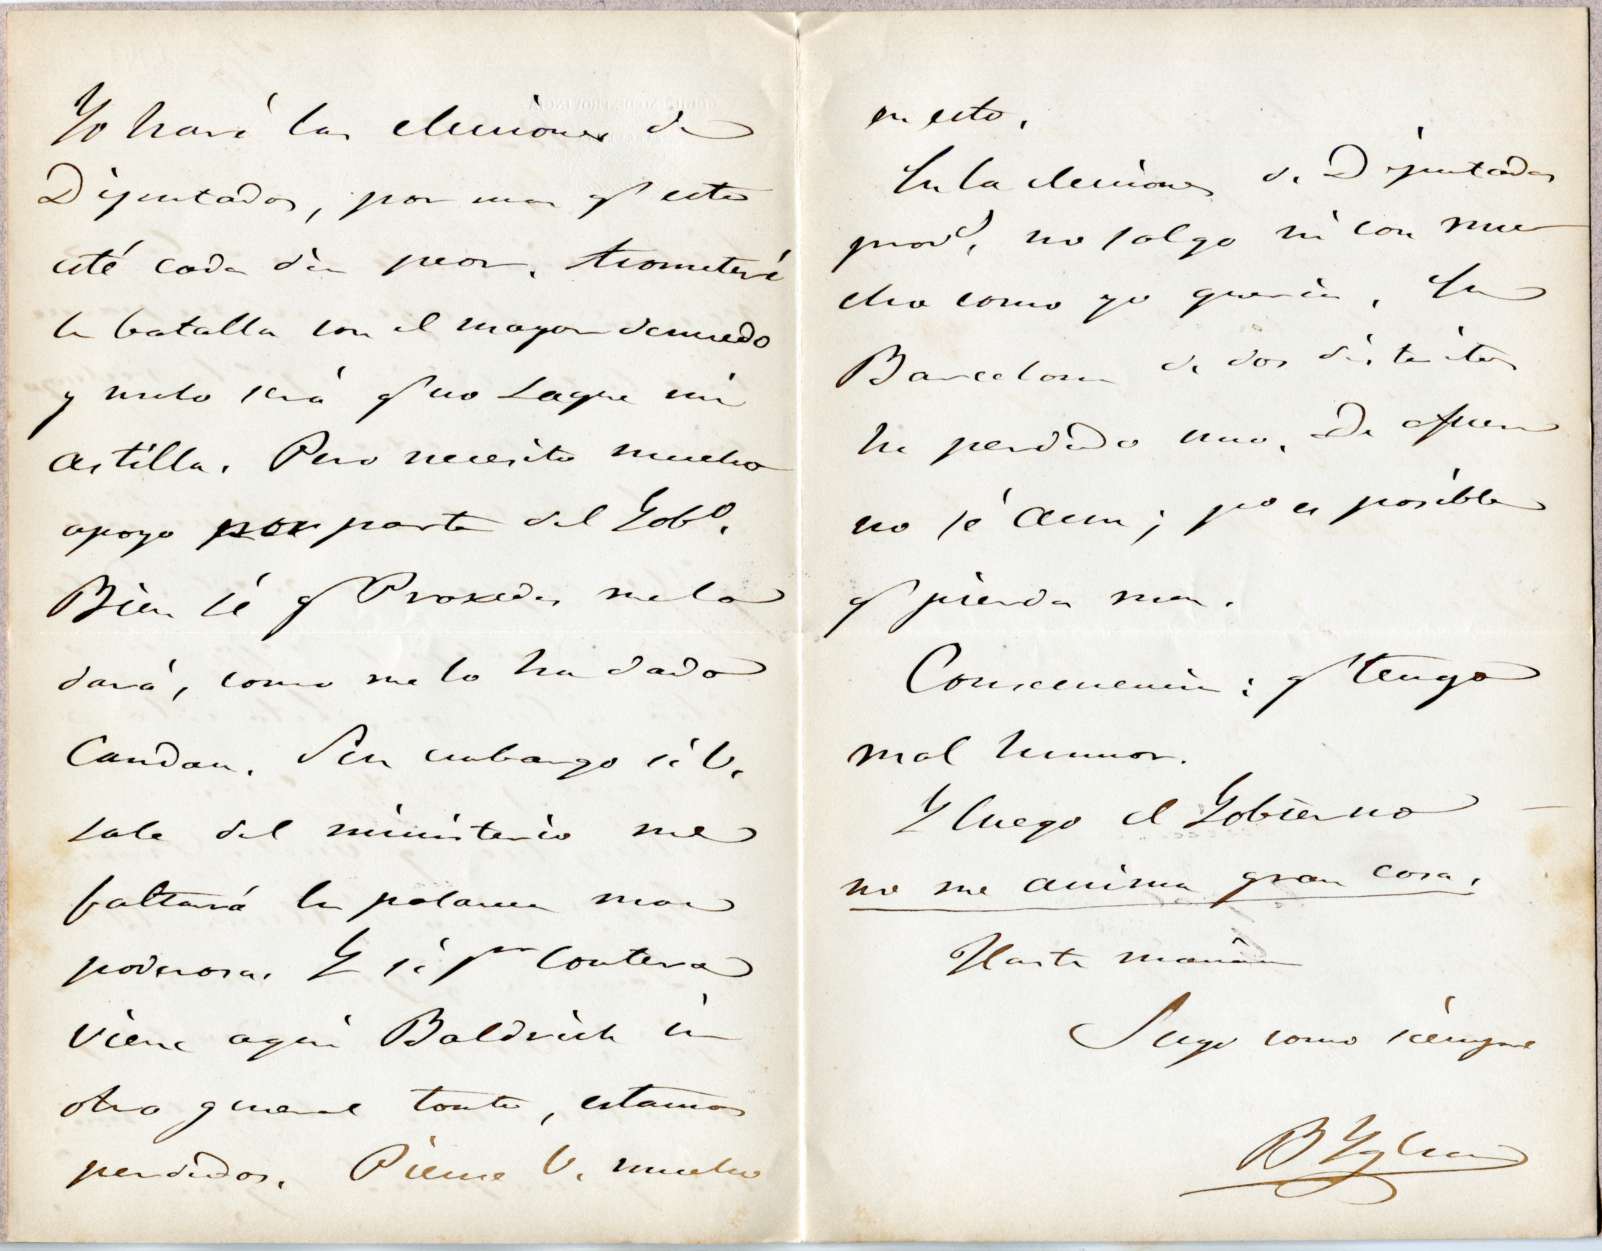 Yo haré las elecciones de
Diputados, por mas q.e esto
esté cada dia peor. Acometeré
la batalla con el mayor denuedo
y malo será q.e no saque mi
astilla. Pero necesito mucho
apoyo por parte del Gob.o
Bien sé q.e Proxedes me lo
dará, como me lo ha dado
Candau. Sin embargo si V.
sale del ministerio me
faltará la palanca mas
poderosa. Y si p.r contera
viene aqui Baldrich ú
otro general tonto, estamos
perdidos. Piense V. mucho
en esto.
En la elecciones de Diputados
prov.s no salgo ni con mu
cho como yo queria. En
Barcelona de dos distritos
he perdido uno. De afuera
no sé aun; p.o es posible
q.e pierda mas.
Consecuencia: q.e tengo
mal humor.
Y luego el Gobierno
no me anima gran cosa.
Hasta mañana
Suyo como siempre
B Yglesias